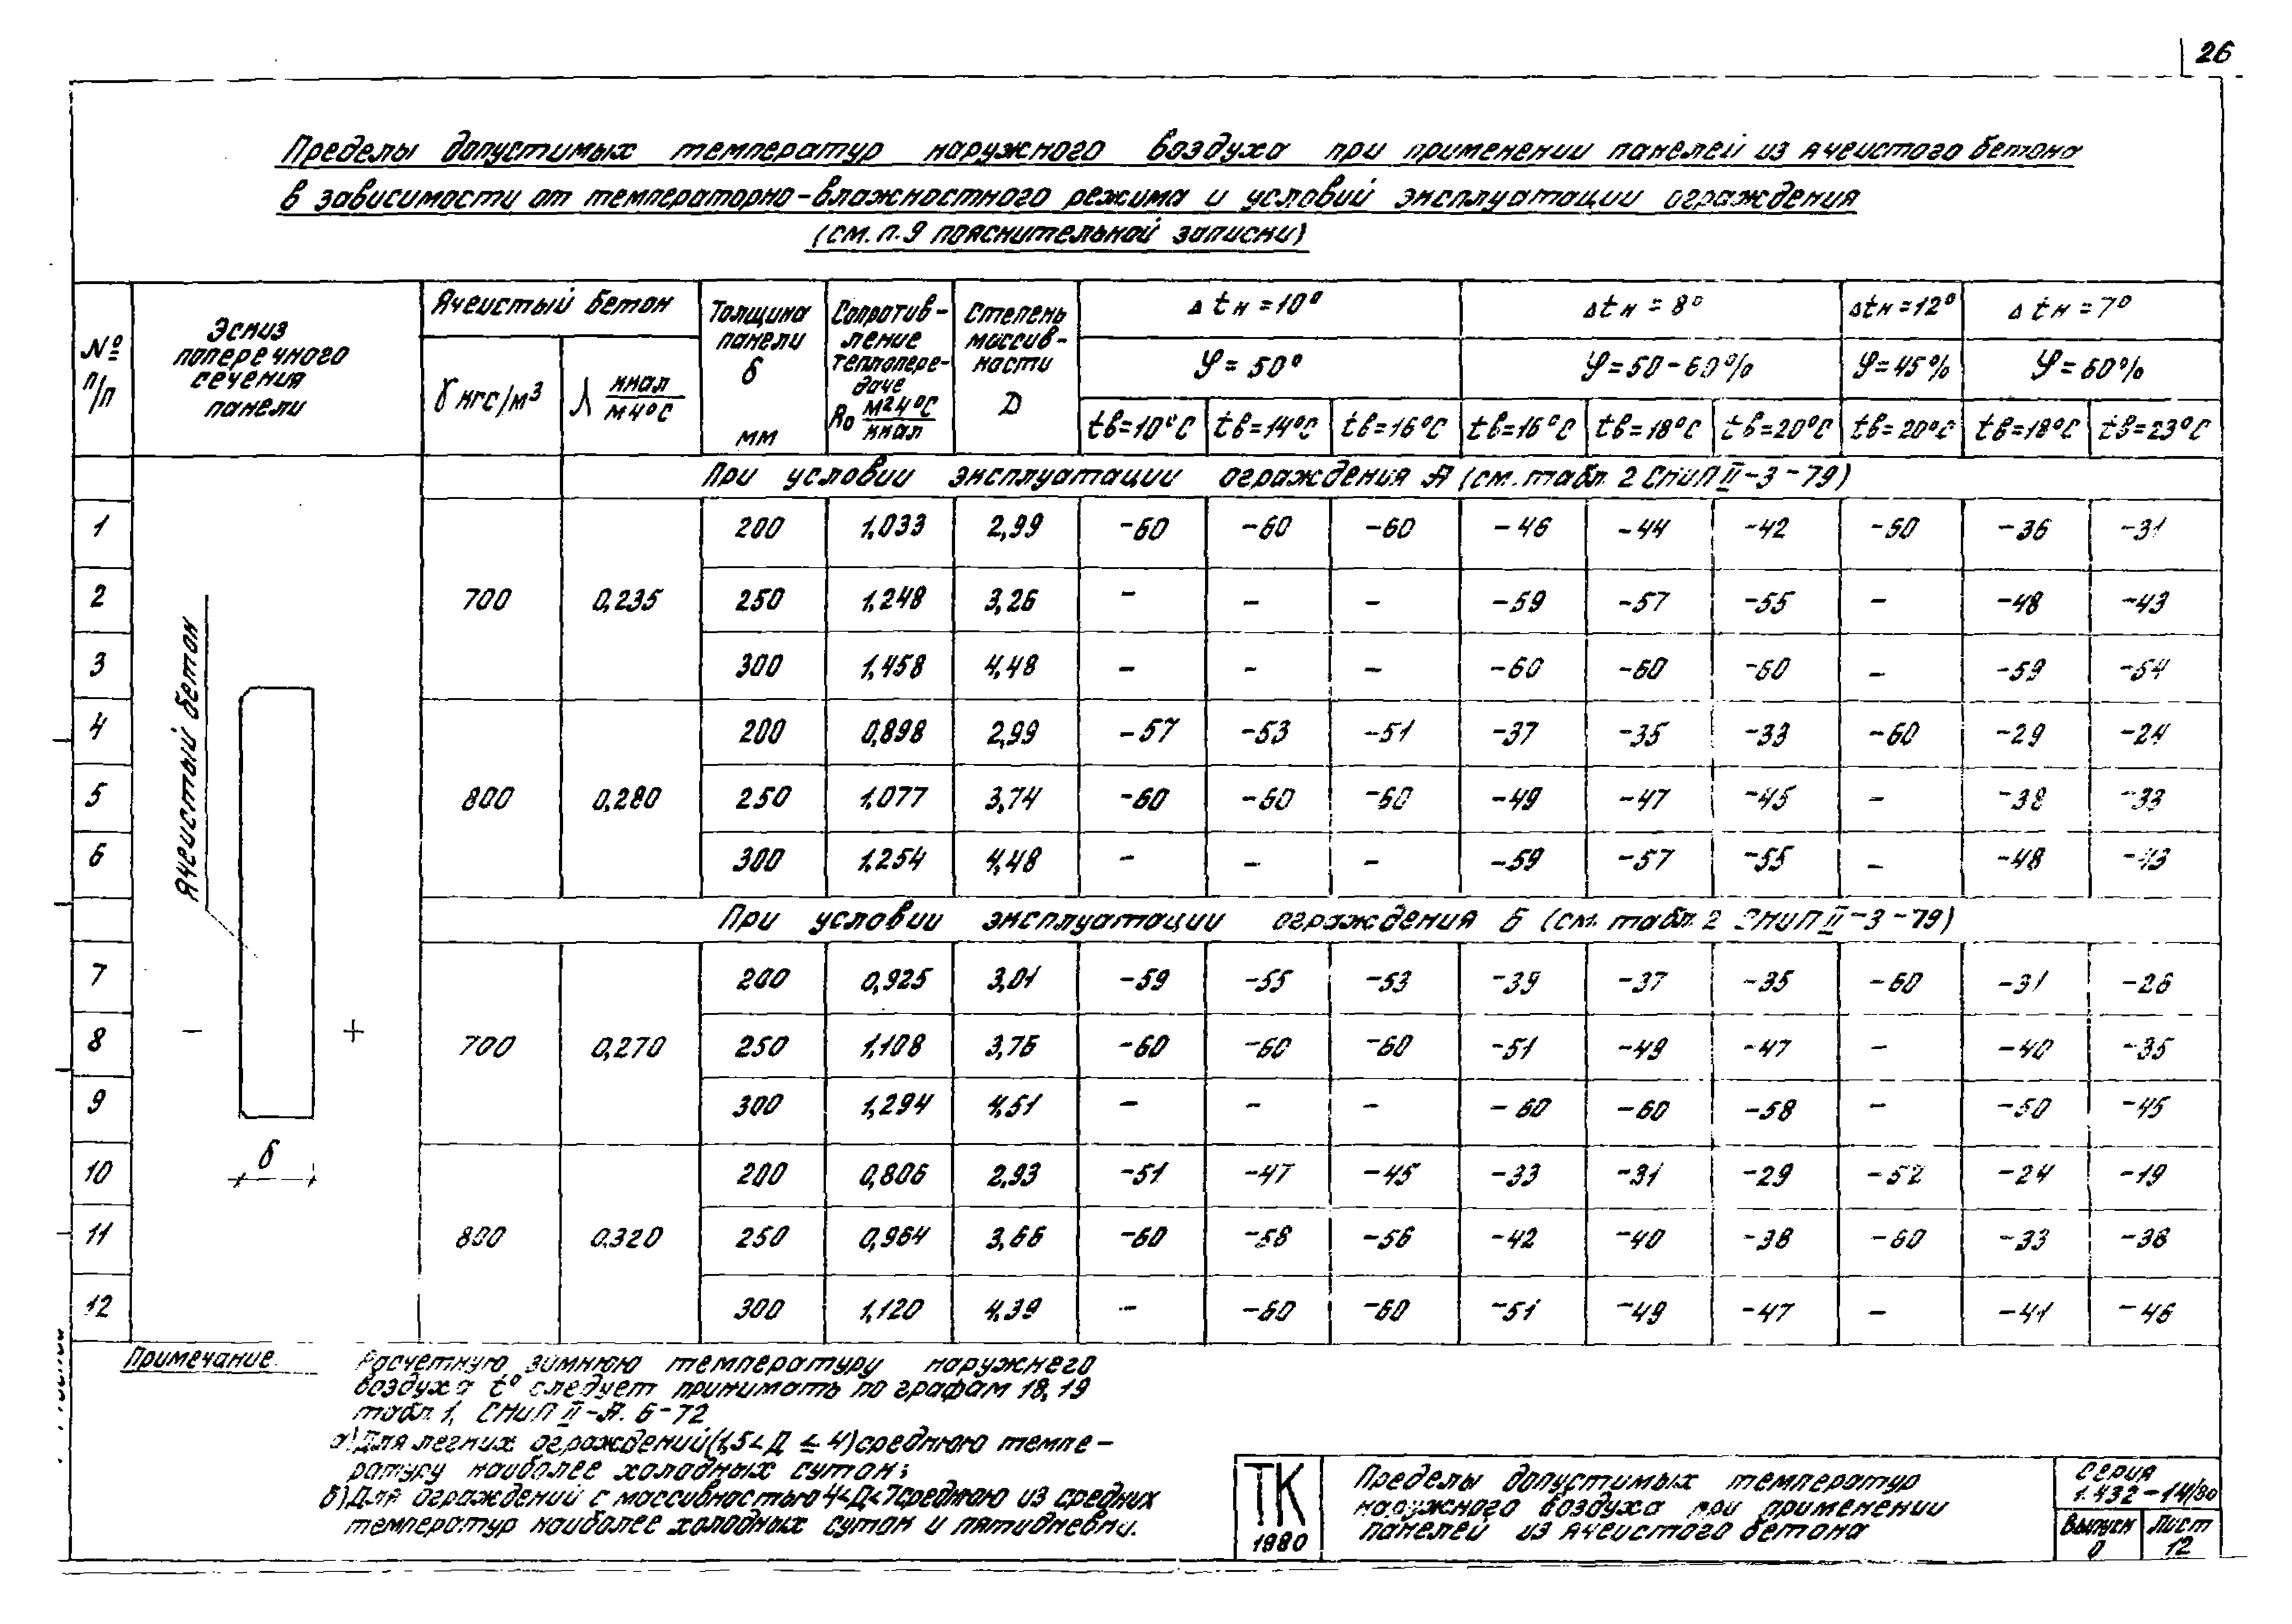 26
Пределы допустимых температур наружного воздуха при применении панелей из ячеистого бетона
в зависимости от температорно-влажностного режима и условий эксплуатации ограждения
(см. п. 9 пояснительной записки)
№ п/п
Эскиз поперечного сечения панели
Ячеистый бетон
γ кгс/м³
λ ккал/м ч °С
Толщина панели δ мм
Сопротив-ление теплопере-даче R₀ м² ч °С/ккал
Степень массив-ности Д
Δ tн = 10°
Δ tн = 8°
Δtн = 12°
Δ tн = 7°
φ = 50°
φ = 50-60%
φ = 45%
φ = 60%
tв=10°С tв=14°С tв=16°С tв=16°С tв=18°С tв=20°С tв=20°С tв=18°С tв=23°С
При условии эксплуатации ограждения А (см. табл. 2 СНиП II-3-79)
1 200 1,033 2,99 -60 -60 -60 -46 -44 -42 -50 -36 -31
2 700 0,235 250 1,248 3,26 - - - -59 -57 -55 - -48 -43
3 300 1,458 4,48 - - - -60 -60 -60 - -59 -54
4 200 0,898 2,99 -57 -53 -51 -37 -35 -33 -60 -29 -24
5 800 0,280 250 1,077 3,74 -60 -60 -60 -49 -47 -45 - -38 -33
6 300 1,254 4,48 - - - -59 -57 -55 - -48 -43
При условии эксплуатации ограждения Б (см. табл. 2 СНиП II-3-79)
7 200 0,925 3,01 -59 -55 -53 -39 -37 -35 -60 -31 -26
8 700 0,270 250 1,108 3,76 -60 -60 -60 -51 -49 -47 - -40 -35
9 300 1,294 4,51 - - - -60 -60 -58 - -50 -45
10 200 0,806 2,93 -51 -47 -45 -33 -31 -29 -52 -24 -19
11 800 0.320 250 0,964 3,66 -60 -58 -56 -42 -40 -38 -60 -33 -38
12 300 1,120 4,39 - -60 -60 -51 -49 -47 - -41 -46
Ячеистый бетон
- +
δ
Примечание.
Расчетную зимнюю температуру наружнего
воздуха t° следует принимать по графам 18, 19
табл. 1, СНиП II-А. 6-72
а) Для легких ограждений (1,5< Д ≤ 4) среднюю темпе-
ратуру наиболее холодных суток;
б) Для ограждений с массивностью 4<Д<7 среднюю из средних
температур наиболее холодных суток и пятидневки.
ТК
1980
Пределы допустимых температур
наружного воздуха при применении
панелей из ячеистого бетона
Серия
1.432-14/80
Выпуск 0
Лист 12